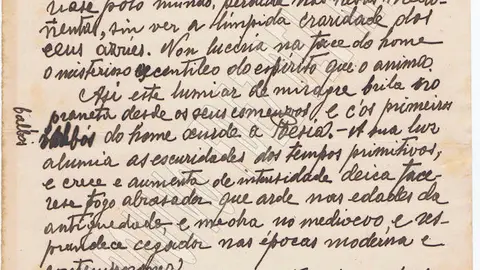 polo mundo, perdida nas
mentas, sin ver a límpida craridade dos
ceus azues. Non lucería na face do home
o misterioso escentileo do espírito que o anima.
Así este lumiar de miragre brila no
praneta desde os seus comenzos, e c'os primeiros
balbos do home xurde a Poesía. - A sua luz
balbos
alumia as escuridades dos tempos primitivos,
e crece e aumenta de intensidade deica face-
rese fogo abrasador que arde nas edades da
antiguedade, e medra no medioevo, e res-
prandece cegador nas épocas moderna e
contemporanea.